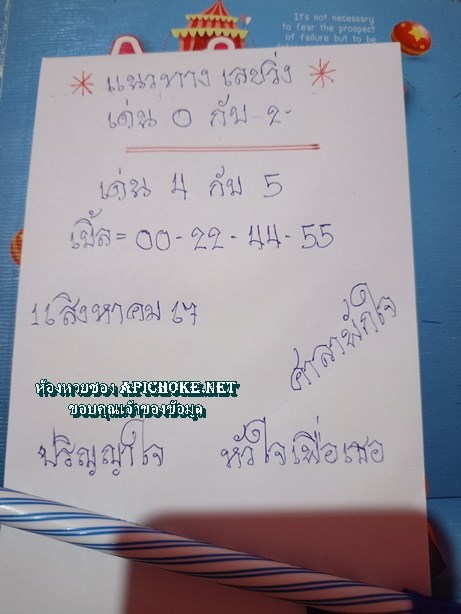 It's not necessary
to fear the prospect
of failure but to be
* แนวทาง เลขวิ่ง *
เด่น 0 กับ 2
เด่น 4 กับ 5
เบิ้ล = 00-22-44-55
1 สิงหาคม 67
ศาลาพักใจ
ห้องหวยซอง APICHOKE.NET
ขอบคุณเจ้าของข้อมูล
ปริญญาใจ หัวใจเพื่อเธอ